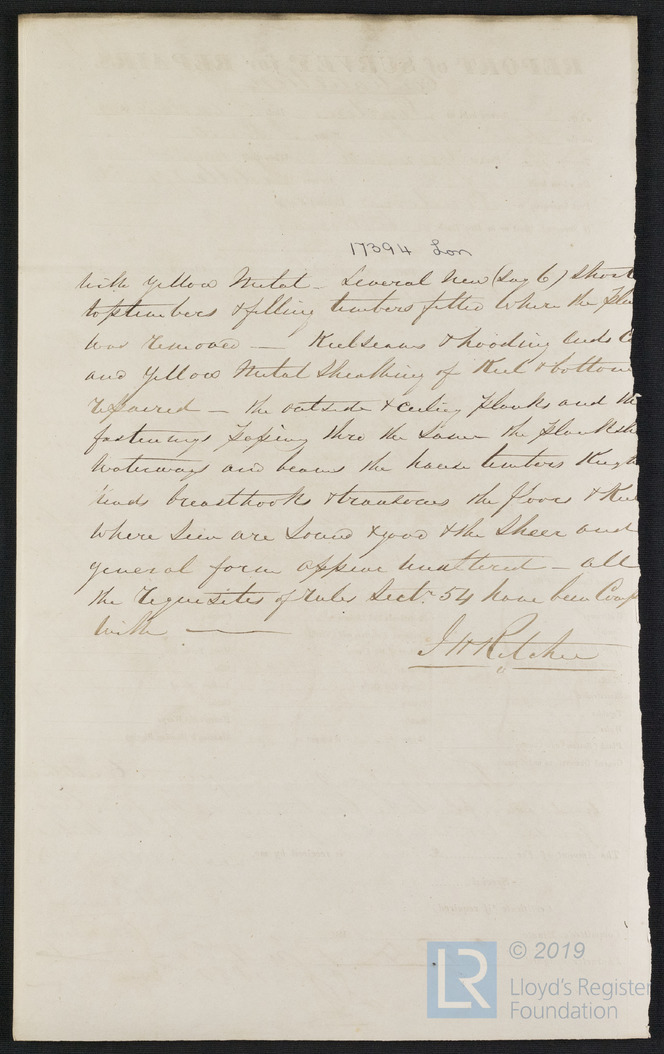 17394 Lon
with yellow Metal – Several New (Say 6) Short
toptimbers & filling timbers fitted where the Pla
was removed — Keelseams & hooding ends C
and yellow Metal Sheathing of Keel & bottom
repaired – the outside & ceiling planks and the
fastenings passing thro the same the plankshe
waterways and beams the hawse timbers Knight
heads breasthooks & transoms the floors & Keel
where seen are Sound & good & the Sheer and
general form appear unaltered – all
the requisites of rules Sectn 54 have been Comp
with —
J H Ritchie
© 2019
Lloyd's Register
Foundation
LR